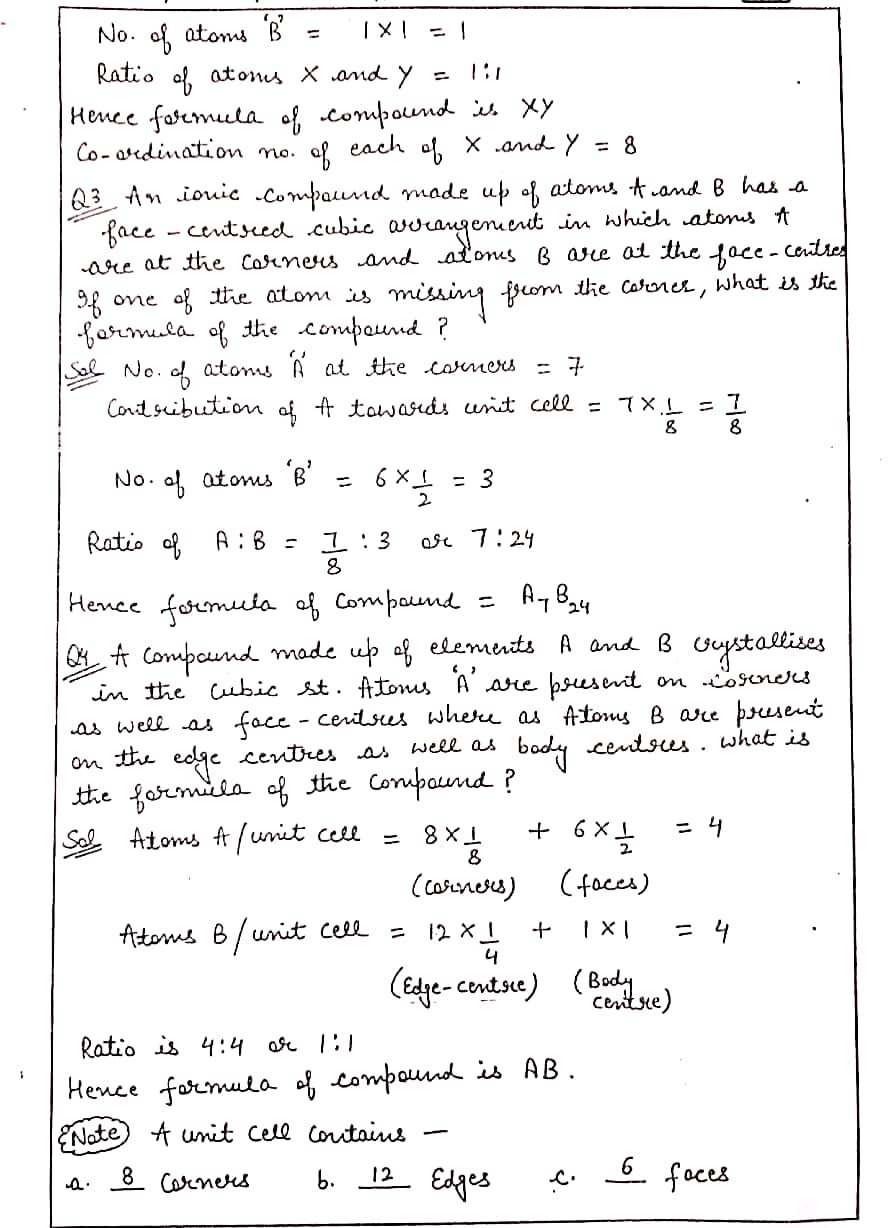 No. of atoms 'B' = 1 × 1 = 1
Ratio of atoms X and Y = 1:1
Hence formula of compound is XY
Co-ordination no. of each of X and Y = 8
Q3 An ionic compound made up of atoms A and B has a
face-centred cubic arrangement in which atoms A
are at the corners and atoms B are at the face-centres
If one of the atom is missing from the corner, what is the
formula of the compound?
Sol No. of atoms 'A' at the corners = 7
Contribution of A towards unit cell = 7 × 1/8 = 7/8
No. of atoms 'B' = 6 × 1/2 = 3
Ratio of A : B = 7/8 : 3 or 7 : 24
Hence formula of compound = A₇B₂₄
Q4 A compound made up of elements A and B crystallises
in the cubic st. Atoms 'A' are present on corners
as well as face-centres where as Atoms B are present
on the edge centres as well as body centres. what is
the formula of the compound?
Sol Atoms A/unit cell = 8 × 1/8 + 6 × 1/2 = 4
(corners) (faces)
Atoms B/unit cell = 12 × 1/4 + 1 × 1 = 4
(Edge-centre) (Body centre)
Ratio is 4:4 or 1:1
Hence formula of compound is AB.
Note A unit cell contains —
a. 8 Corners b. 12 Edges c. 6 faces